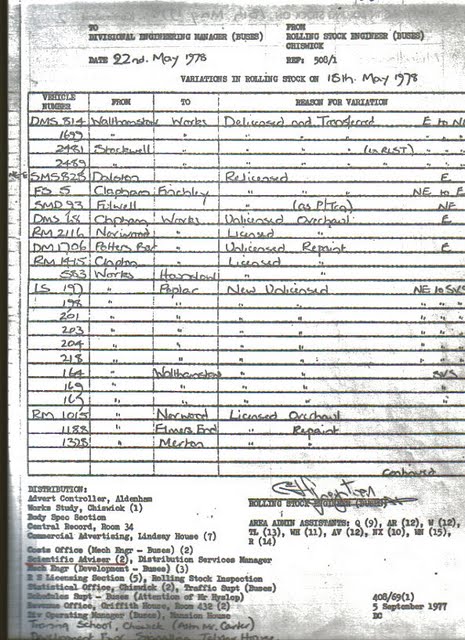 TO FROM
DIVISIONAL ENGINEERING MANAGER (BUSES) ROLLING STOCK ENGINEER (BUSES)
CHISWICK
DATE 22nd. May 1978 REF: 508/1
VARIATIONS IN ROLLING STOCK ON 18th. May 1978
VEHICLE NUMBER FROM TO REASON FOR VARIATION
DMS 814 Walthamstow Works Delicensed and Transferred E to NE
1699 " " " " "
2481 Stockwell " " " (in RLST) "
2489 " " " " "
SMS 825 Dalston Relicensed E
FS 5 Clapham Finchley " " NE to E
SMD 93 Fulwell " (as P/Tca) NE
DMS 68 Clapham Works Unlicensed Overhaul E
RM 2116 Norwood " Licensed " "
DM 1706 Potters Bar " Unlicensed Repaint E
RM 1415 Clapton " Licensed "
583 Works Hounslow " "
LS 197 " Poplar New Unlicensed NE to SVS
198 " " " " " "
201 " " " " " "
203 " " " " " "
204 " " " " " "
218 " " " " " "
164 " Walthamstow " " SVS
169 " " " " "
165 " " " " "
RM 1015 " Norwood Licensed Overhaul
1188 " Elmers End " Repaint
1328 " Merton " "
Continued
DISTRIBUTION:
Advert Controller, Aldenham
Works Study, Chiswick (1) ROLLING STOCK ENGINEER (BUSES)
Body Spec Section
Central Record, Room 34 AREA ADMIN ASSISTANTS: Q (9), AR (12), W (12),
Commercial Advertising, Lindsay House (7) TL (13), WH (11), AV (12), NX (10), WN (15),
R (14)
Costs Office (Mech Engr - Buses) (2)
Scientific Adviser (2), Distribution Services Manager
Mech Engr (Development - Buses) (3)
R S Licensing Section (5), Rolling Stock Inspection
Statistical Office, Chiswick (2), Traffic Supt (Buses)
Schedules Supt - Buses (Attention of Mr Hyslop) 408/69(1)
Revenue Office, Griffith House, Room 432 (2) 5 September 1977
Div Operating Manager (Buses), Mansion House DC
Training School, Chiswick (Attn Mr Carter)